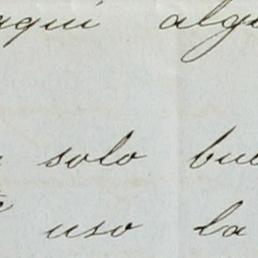 aqui alg
solo bu
uso la